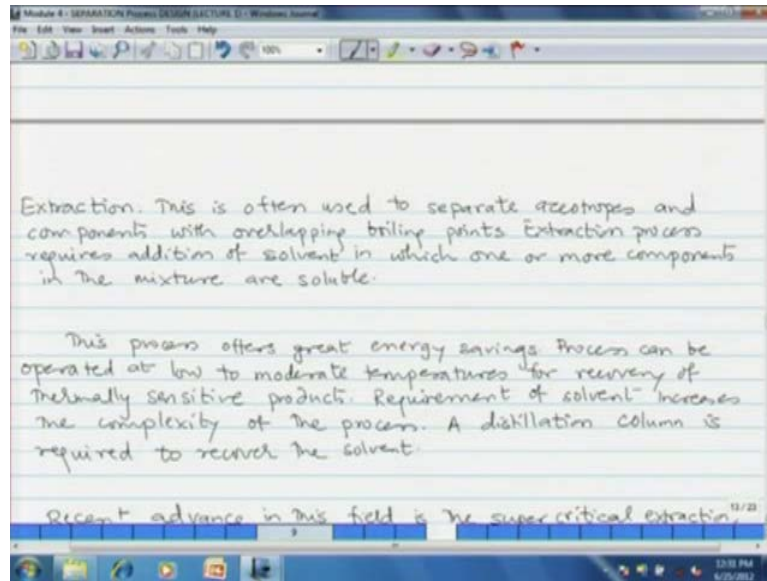 Module 4 - SEPARATION Process DESIGN (LECTURE 1) - Windows Journal
File Edit View Insert Actions Tools Help
100%
Extraction. This is often used to separate azeotropes and
components with overlapping boiling points Extraction process
requires addition of solvent in which one or more components
in the mixture are soluble.
This process offers great energy savings. Process can be
operated at low to moderate temperatures for recovery of
thermally sensitive product. Requirement of solvent increases
the complexity of the process. A distillation column is
required to recover the solvent.
Recent advance in this field is the supercritical extraction,
13/23
9
12:31 PM
6/25/2012